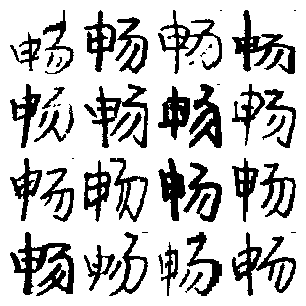 畅畅畅畅
畅畅畅畅
畅畅畅畅
畅畅畅畅